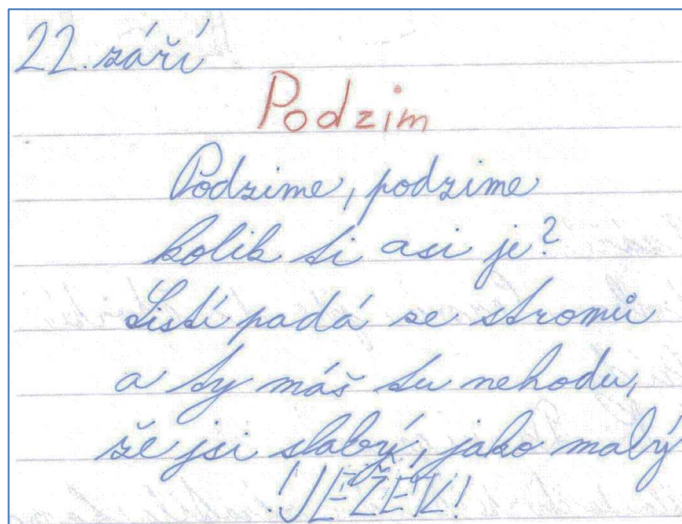 22. září
Podzim
Podzime, podzime
kolik ti asi je?
Listí padá ze stromů
a ty máš tu nehodu,
že jsi slabý, jako malý
! JEŽEK!